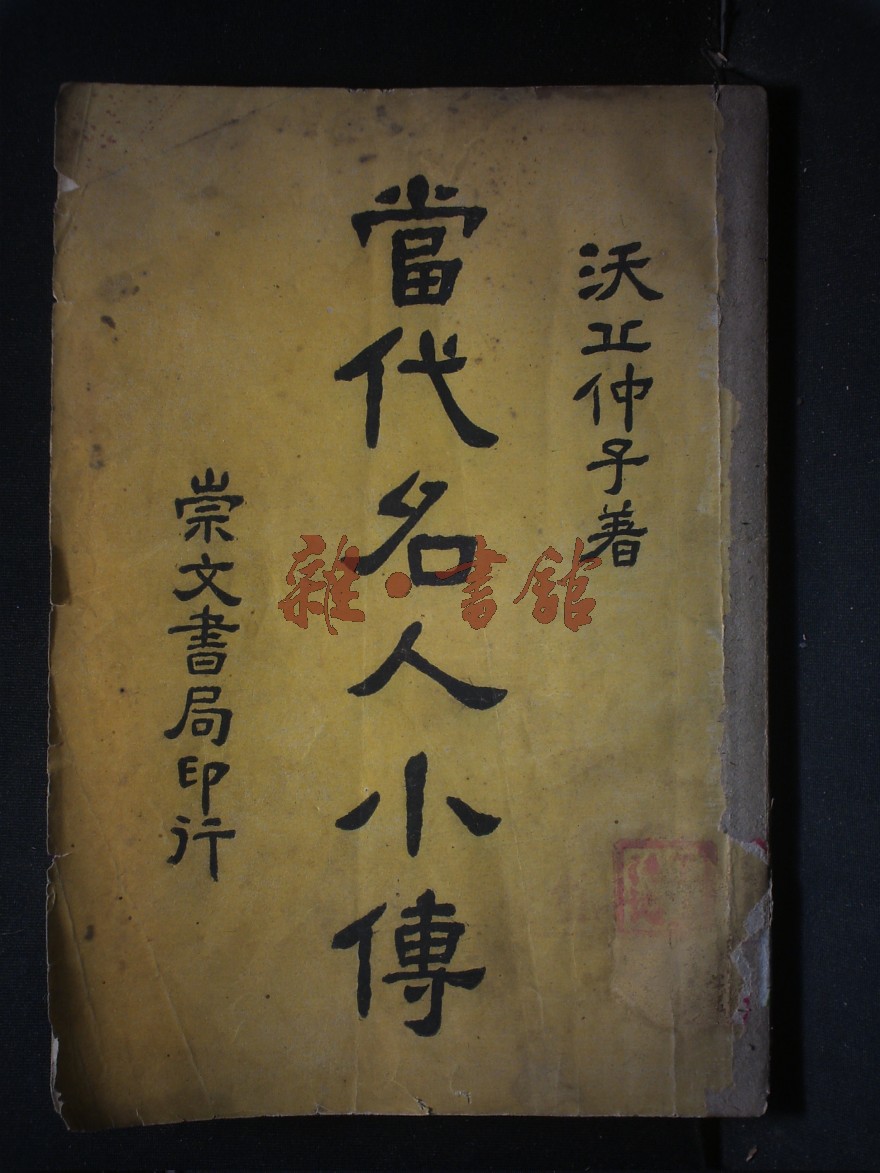 沃丘仲子著
當代名人小傳
崇文書局印行
雜·書館